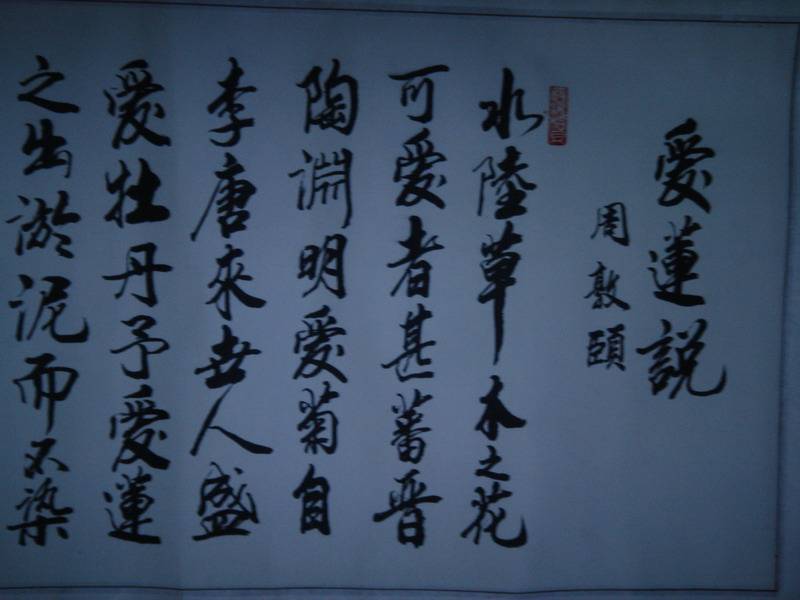 愛蓮說
周敦頤
水陸草木之花
可愛者甚蕃晉
陶淵明愛菊自
李唐來世人盛
愛牡丹予愛蓮
之出淤泥而不染